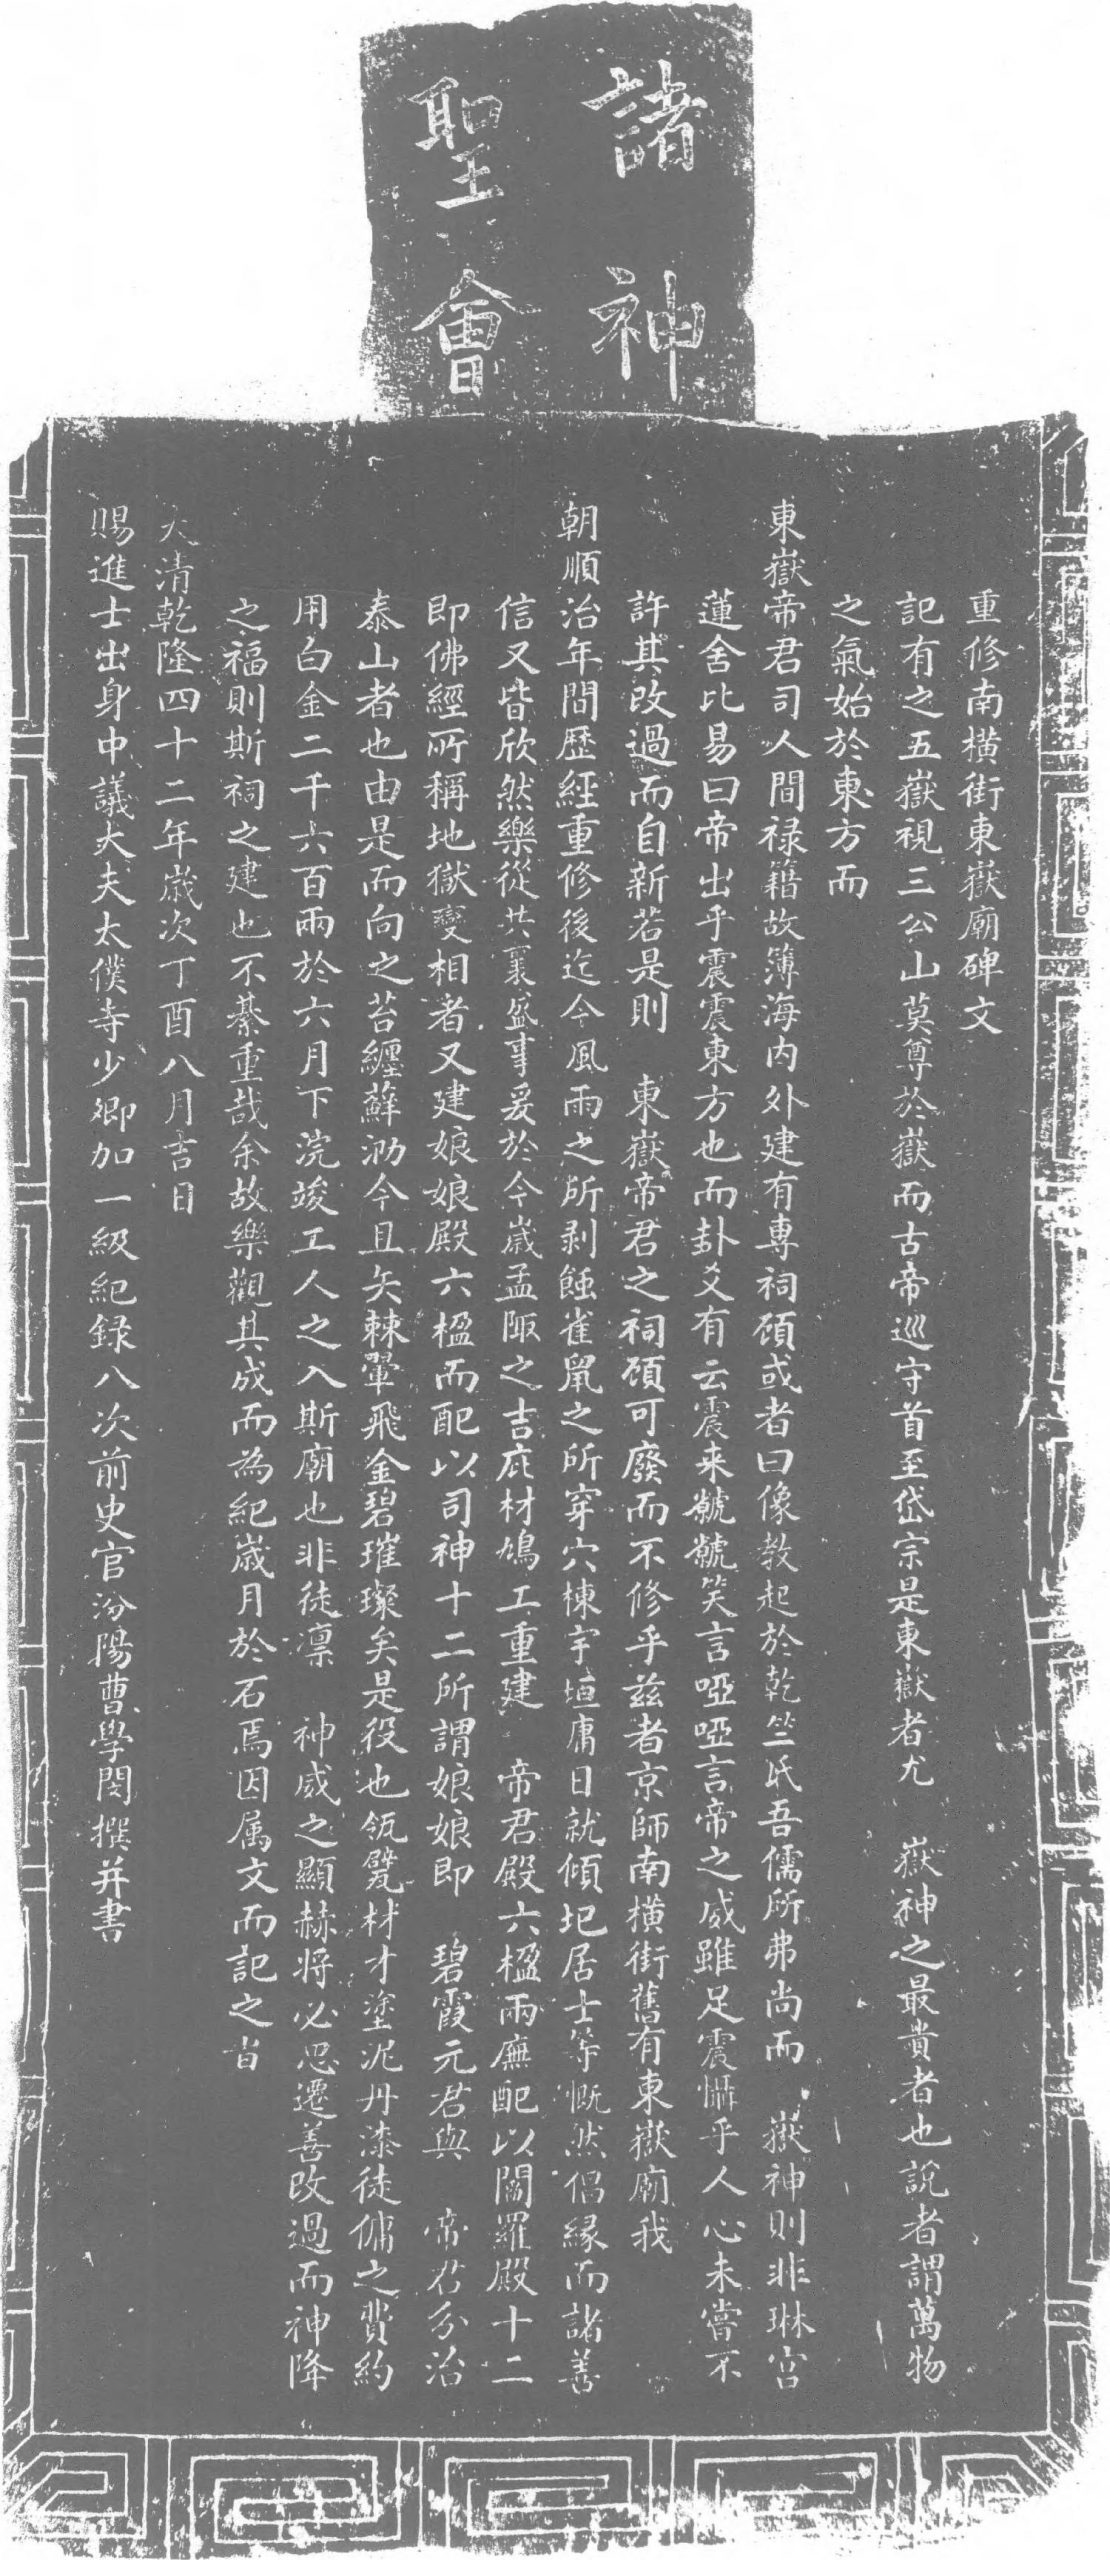 諸神
聖會
重修南橫街東嶽廟碑文
記有之五嶽視三公山莫尊於嶽而古帝巡守首至岱宗是東嶽者尤 嶽神之最貴者也說者謂萬物
之氣始於東方而
東嶽帝君司人間祿籍故薄海內外建有專祠顧或者曰像教起於乾竺氏吾儒所弗尚而 嶽神則非琳宮
蓮舍比易曰帝出乎震震東方也而卦爻有云震来虩虩笑言啞啞言帝之威雖足震懾乎人心未嘗不
許其改過而自新若是則 東嶽帝君之祠顧可廢而不修乎茲者京師南橫街舊有東嶽廟我
朝順治年間歷經重修後迄今風雨之所剥蝕雀鼠之所穿穴棟宇垣庸日就傾圮居士等慨然倡緣而諸善
信又皆欣然樂從共襄盛事爰於今歲孟陬之吉庀材鳩工重建 帝君殿六楹兩廡配以閻羅殿十二
即佛經所稱地獄變相者又建娘娘殿六楹而配以司神十二所謂娘娘即 碧霞元君與 帝君分治
泰山者也由是而向之苔纏蘚泐今且矢棘翬飛金碧璀璨矣是役也瓴甓材才塗泥丹漆徒傭之費約
用白金二千六百兩於六月下浣竣工人之入斯廟也非徒凛 神威之顯赫將必思遷善改過而神降
之福則斯祠之建也不綦重哉余故樂觀其成而為紀歲月於石焉因属文而記之旹
大清乾隆四十二年歲次丁酉八月吉日
賜進士出身中議大夫太僕寺少卿加一級紀録八次前史官汾陽曹學閔撰并書